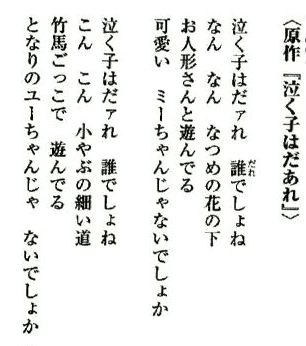 〈原作『泣く子はだあれ』〉
泣く子はだァれ　誰でしょね
だれ
なん　なん　なつめの花の下
お人形さんと遊んでる
可愛い　ミーちゃんじゃないでしょか
泣く子はだァれ　誰でしょね
こん　こん　小やぶの細い道
竹馬ごっこで　遊んでる
となりのユーちゃんじゃ　ないでしょか